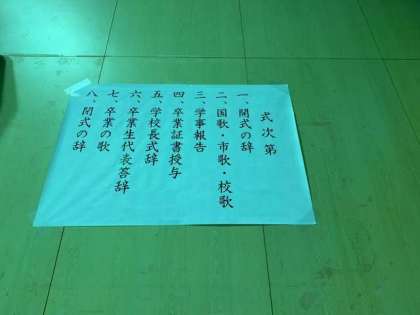 式次第
一、開式の辞
二、国歌・市歌・校歌
三、学事報告
四、卒業証書授与
五、学校長式辞
六、卒業生代表答辞
七、卒業の歌
八、閉式の辞